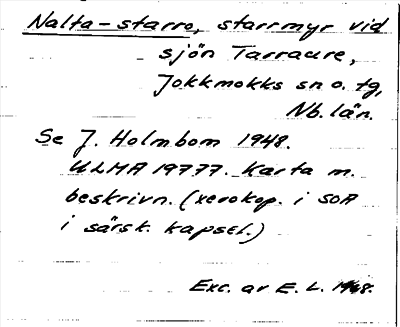 Nalta-starro, starrmyr vid
sjön Tarraure,
Jokkmokks sn o. tg,
Nb. län.
Se J. Holmbom 1948.
ULMA 19777. Karta m.
beskrivn. (xerokop. i SOA
i särsk. kapsel.)
Exc. av E. L. 1948.